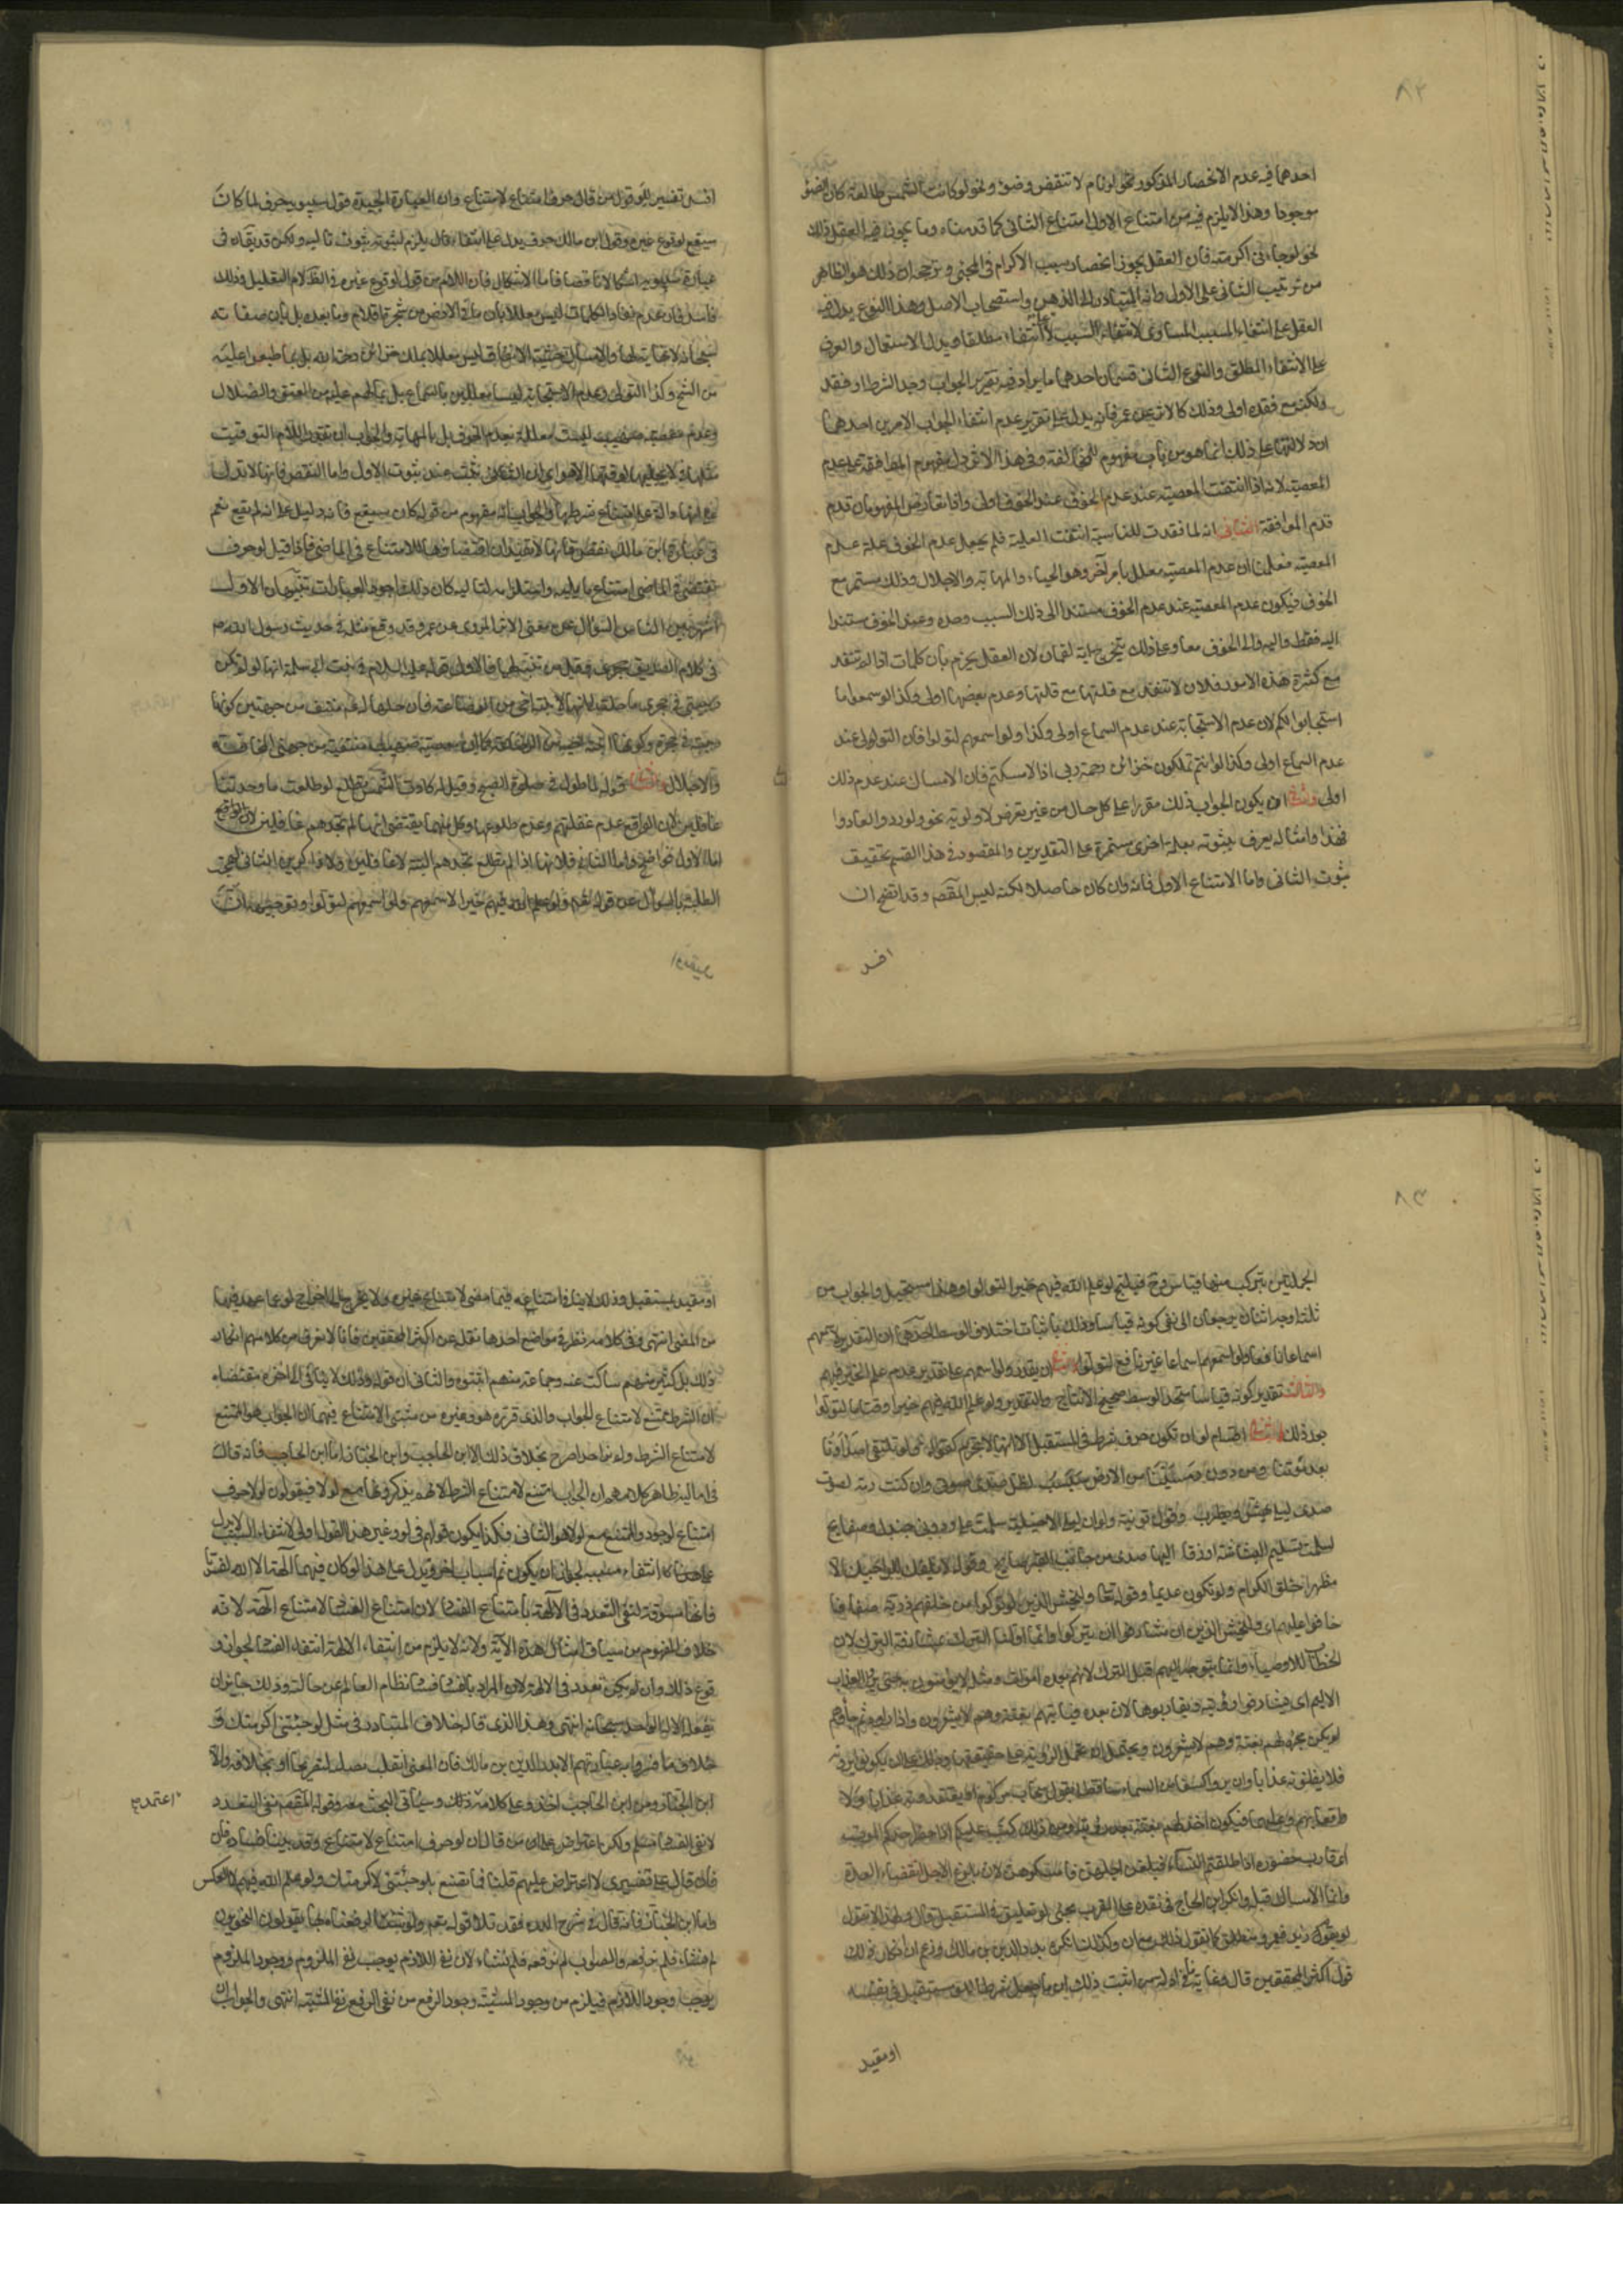 ٨٢
احدهما فيه عدم الانحصار المذكور نحو لو نام لانتقض وضوؤه ونحو لو كانت الشمس طالعة كان الضوء
موجودا وهذا لا يلزم فيه من امتناع الاول امتناع الثاني كما قدمناه وما يجوز فيه العقل ذلك
نحو لو جاءني اكرمته فان العقل يجوز انحصار سبب الاكرام في المجئ ويرجحه ان ذلك هو الظاهر
من ترتيب الثاني على الاول وانه المتبادر الى الذهن واستصحاب الاصل وهذا النوع يدل فيه
العقل على انتفاء المسبب المساوي لانتفاء السبب لا على انتفاء مطلقا ويدل الاستعمال والعرف
على الانتفاء المطلق والنوع الثاني قسمان احدهما ما يراد فيه تقرير الجواب وجد الشرط او فقد
ولكنه مع فقده اولى وذلك كالاثر عن عمر فانه يدل على تقرير عدم انتفاء الجواب الامرين احدهما
ان دلالتها على ذلك انما هو من باب مفهوم المخالفة وفي هذا الاثر دل مفهوم الموافقة على عدم
المعصية لانه اذا انتفت المعصية عند عدم الخوف فعند الخوف اولى واذا تعارض المفهومان قدم
قدم الموافقة الثاني انه لما فقدت المناسبة انتفت العلية فلم يجعل عدم الخوف علة عدم
المعصية فعلمنا ان عدم المعصية معلل بامر آخر وهو الحياء والمهابة والاجلال وذلك مستمر مع
الخوف فيكون عدم المعصية عند عدم الخوف مستندا الى ذلك السبب وحده وعند الخوف مستندا
اليه فقط واليه والى الخوف معا وعلى ذلك يتخرج اية لقمان لان العقل يجزم بان كلمات اذا لم تنفد
مع كثرة هذه الامور فلان لا تنفد مع قلتها وعدم بعضها اولى وكذا لو سمعوا ما
استجابوا لكم لان عدم الاستجابة عند عدم السماع اولى وكذا ولو اسمعهم لتولوا فان التولي عند
عدم السماع اولى وكذا لو انتم تملكون خزائن رحمة ربي اذا لامسكتم فان الامساك عند عدم ذلك
اولى والثاني ان يكون الجواب ذلك مقررا على كل حال من غير تعرض لاولوية نحو ولو ردوا لعادوا
فهذا وامثاله يعرف ثبوته بعلة اخرى مستمرة على التقديرين والمقصود في هذا القسم تحقيق
ثبوت الثاني واما الامتناع الاول فانه وان كان حاصلا لكنه ليس المقصم وقد اتضح ان
افسد
افسد تفسير للو قول من قال حرف امتناع لامتناع وان العبارة الجيدة قول سيبويه حرف لما كان
سيقع لوقوع غيره وقول ابن مالك حرف يدل على انتفاء تال يلزم لثبوته ثبوت تاليه ولكن قد يقال في
عبارة سيبويه اشكالا ونقصا فاما الاشكال فان اللام من قوله لوقوع غيره في الظ لام التعليل وذلك
فاسد فان عدم نفاد الكلمات ليس معللا بان ما في الارض من شجرة اقلام وما بعده بل بان صفاته
سبحانه لا نهاية لها والامساك خشية الانفاق ليس معللا بملك خزائن رحمة الله بل بما طبعوا عليه
من الشح وكذا التولي وعدم الاستجابة ليسا معللين بالسماع بل بما هم عليه من العتو والضلال
وعدم معصية صهيب ليست معللة بعدم الخوف بل بالمهابة والجواب ان تقدر اللام للتوقيت
مثلها في لا يجليها لوقتها الا هو اي ان الثاني يثبت عند ثبوت الاول واما النقص فلانها لا تدل
على انها دالة على امتناع شرطها والجواب انه مفهوم من قوله كان سيقع فانه دليل على انه لم يقع نعم
في عبارة ابن مالك نقص فانها لا تفيد ان اقتضاءها للامتناع في الماضي فاذا قيل لو حرف
يقتضي في الماضي امتناع ما يليه واستلزامه لتاليه كان ذلك اجود العبارات تنبيهان الاول
اشتهر بين الناس السؤال عن معنى الاثر المروي عن عمر وقد وقع مثله في حديث رسول الله صم
في كلام الصديق نحوه وقل من تنبه لها فالاول قوله عليه السلام في بنت ابي سلمة انها لو لم تكن
ربيبتي في حجري ما حلت لي انها لابنة اخي من الرضاعة فان حلها له عم منتف من جهتين كونها
ربيبته في حجره وكونها ابنة اخيه من الرضاعة كما ان معصية صهيب منتفية من جهتي المخافة
والاجلال والثاني قوله لما طول في صلوة الصبح وقيل له كادت الشمس تطلع لو طلعت ما وجدتنا
غافلين لان الواقع عدم غفلتهم وعدم طلوعها وكل منهما يقتضي انها لم تجدهم غافلين لان الواقع
اما الاول فواضح واما الثاني فلانها اذا لم تطلع لم تجدهم البتة لا غافلين ولا ذاكرين الثاني لهجت
الطلبة بالسؤال عن قوله تعم ولو علم الله فيهم خيرا لاسمعهم ولو اسمعهم لتولوا وتوجيهه ان
او مقيد
٨٣
الجملتين يتركب منهما قياس وح فينتج لو علم الله فيهم خيرا لتولوا وهذا مستحيل والجواب من
ثلثة اوجه اثنان يرجعان الى نفي كونه قياسا وذلك باثبات اختلاف الوسط احدهما ان التقدير لاسمعهم
اسماعا نافعا ولو اسمعهم اسماعا غير نافع لتولوا والثاني ان يقدر ولو اسمعهم على تقدير عدم علم الخير فيهم
والثالث تقدير كونه قياسا متحد الوسط صحيح الانتاج والتقدير ولو علم الله فيهم خيرا وقتا ما لتولوا
بعد ذلك والثاني اقسام لو ان تكون حرف شرط في المستقبل الا انها لا تجزم كقوله ولو تلتقي اصداؤنا
بعد موتنا ومن دون رمسينا من الارض سبسب لظل صدى صوتي وان كنت رمة لصوت
صدى ليلى يهش ويطرب وقول توبة ولو ان ليلى الاخيلية سلمت علي ودوني جندل وصفايح
لسلمت تسليم البشاشة او زقا اليها صدى من جانب القبر صايح وقوله لا يلفك الراجيك الا
مظهرا خلق الكرام ولو تكون عديما وقوله تعالى وليخش الذين لو تركوا من خلفهم ذرية ضعافا
خافوا عليهم اي وليخش الذين ان شارفوا ان يتركوا وانما اولنا الترك بمشارفة الترك لان
الخطاب للاوصياء وانما يتوجه اليهم قبل الترك لانهم بعده اموات ومثله لا يؤمنون به حتى يروا العذاب
الاليم اي يشارفوا رؤيته ويقاربوها لان بعده فيأتيهم بغتة وهم لا يشعرون واذا راوه ثم جاءهم
لم يكن مجيئه لهم بغتة وهم لا يشعرون ويحتمل ان تحمل الرؤية على حقيقتها وذلك على ان يكونوا يرونه
فلا يظنونه عذابا وان يروا كسفا من السماء ساقطا يقولوا سحاب مركوم او يعتقدونه عذابا ولا
كتب عليكم اذا حضر احدكم الموت
اي قارب حضوره اذا طلقتم النساء فبلغن اجلهن فامسكوهن لان بلوغ الاجل انقضاء العدة
وانما الامساك قبله وانكر ابن الحاج في نقده على المقرب مجئ لو للتعليق في المستقبل وقال ولهذا لا تقول
لو يقوم زيد فعمرو منطلق كما تقول ذلك مع ان وكذلك انكره بدر الدين بن مالك وزعم ان انكار ذلك
قول اكثر المحققين قال وغاية ما في ادلة من اثبت ذلك ان ما جعل شرطا للو مستقبل في نفسه
او مقيد
او مقيد بمستقبل وذلك لا ينافي امتناعه فيما مضى لامتناع غيره ولا يحوج الى اخراج لو عما عهد فيها
من المضي انتهى وفي كلامه نظر في مواضع احدها نقله عن اكثر المحققين فانا لا نعرف من كلامهم انكار
ذلك بل كثير منهم ساكت عنه وجماعة منهم اثبتوه والثاني ان قوله وذلك لا ينافي الى اخره مقتضاه
ان الشرط ممتنع لامتناع الجواب والذي قرره هو وغيره من مثبتي الامتناع فيهما ان الجواب هو الممتنع
لامتناع الشرط ولم نر احدا صرح بخلاف ذلك الا ابن الحاجب وابن الخباز اما ابن الحاجب فانه قال
في اماليه ظاهر كلامهم ان الجواب امتنع لامتناع الشرط لانهم يذكرونها مع لولا فيقولون لولا حرف
امتناع لوجود والممتنع مع لولا هو الثاني فكذا يكون قولهم في لو وغير هذا القول اولى لان انتفاء السبب لا يدل
على انتفاء مسببه لجواز ان يكون ثم اسباب اخر ويدل على هذا لو كان فيهما آلهة الا الله لفسدتا
فانها مسوقة لنفي التعدد في الآلهة بامتناع الفساد لا ان امتناع الفساد لامتناع الآلهة لانه
خلاف المفهوم من سياق امثال هذه الآية ولانه لا يلزم من انتفاء الالهة انتفاء الفساد لجواز و
قوع ذلك وان لم يكن تعدد في الالهة لان المراد بالفساد فساد نظام العالم عن حالته وذلك جايز ان
يفعله الاله الواحد سبحانه انتهى وهذا الذي قاله خلاف المتبادر في مثل لو جئتني اكرمتك و
خلاف ما فسروا به عبارتهم الا بدر الدين بن مالك فان المعنى انقلب
ابن الخباز ومن ابن الحاجب اخذ وعلى كلامه ذلك وسيأتي البحث معه وقوله المقصم نفي التعدد
اعتمد
لا نفي الفساد مسلم ولكن اعتراض على من قال ان لو حرف امتناع لامتناع وقد بينا فساده فان
فان قال على تفسيري لا اعتراض عليهم قلنا فما تصنع بلو جئتني لاكرمتك ولو علم الله فيهم لاسمعهم
واما ابن الخباز فانه قال في شرح الدرة وقد تلا قوله تعم ولو شئنا لرفعناه بها يقول النحويون
لم نشاء فلم نرفعه والصواب لم نرفعه فلم نشاء لان نفي اللازم يوجب نفي الملزوم ووجود الملزوم
يوجب وجود اللازم فيلزم من وجود المشية وجود الرفع ومن نفي الرفع نفي المشية انتهى والجواب ان